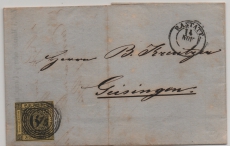 RASTATT
14
NOV
Herrn B. Kreutzer
Geisingen.